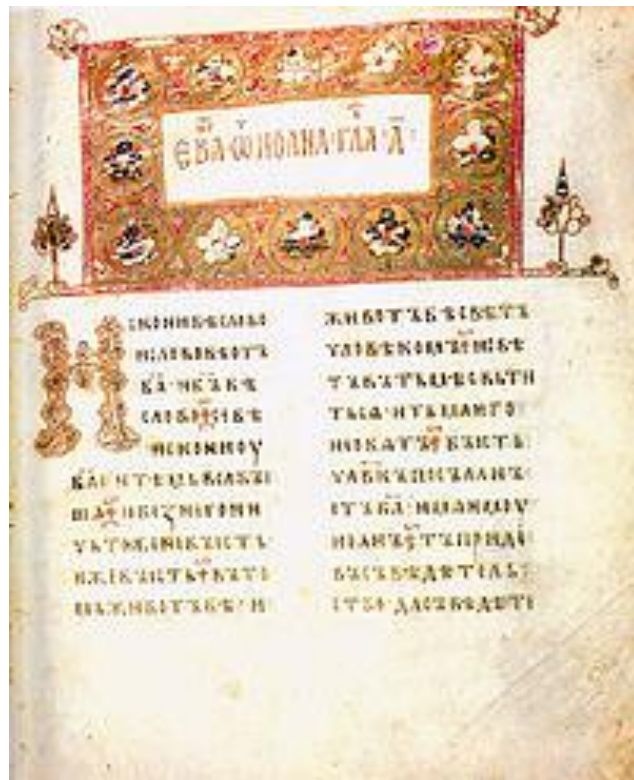 ЄВА ѾИОАНА ГЛА А
ИСКОНИБѢСЛОВО
ИСЛОВОБѢОТЪ
БА҃ ИБЪБѢ
СЛОВО СЕБѢ
ИСКОНИОУ
БА҃ИТѢМЬВЬСѦБЫ
ШѦ ИБЕЖНЕГОНИ
ЧЬТОЖЕНЕБЫСТЬ
ЕЖЕБЫСТЬ ВЪТО
МЬЖИВОТЪБѢ И
ЖИВОТЪБѢСВѢТЪ
ЧЛОВѢКОМЪ ИСВѢ
ТЪВЪТЬМѢСВЬТИ
ТЬСѦ ИТЬМАѤГО
НЕОБѦТЪ БЫСТЬ
ЧЛВКЪПОСЪЛАНЪ
ОТЪБА҃ ИМѦѤМОУ
ИОАНЪ ТЪПРИДЕ
ВЪСЪВѢДѢТЕЛЬ
СТВО ДАСЪВѢДѢТЕ